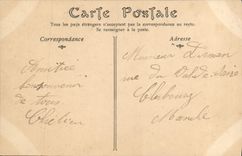 Carte Postale
Tous les pays étrangers n'acceptent pas la correspondance au recto.
Se renseigner à la poste.
Correspondance
Adresse
Amitié
de tous
Monsieur
rue du Val de Saire
Cherbourg
Manche